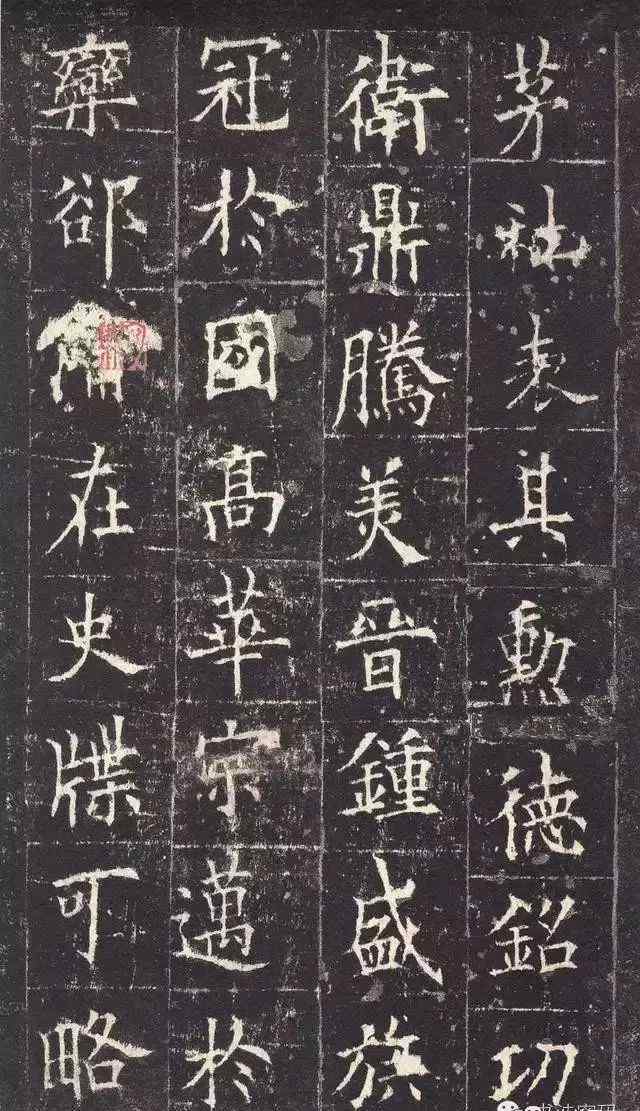 茅社表其勲德銘功
衛鼎騰美晉鍾盛族
冠於國高華宗邁於
欒郤在史牒可略